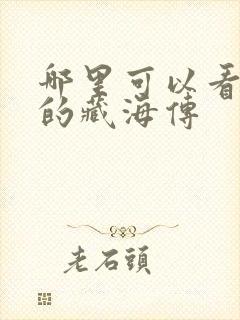 哪里可以看
的藏海傳
老石頭